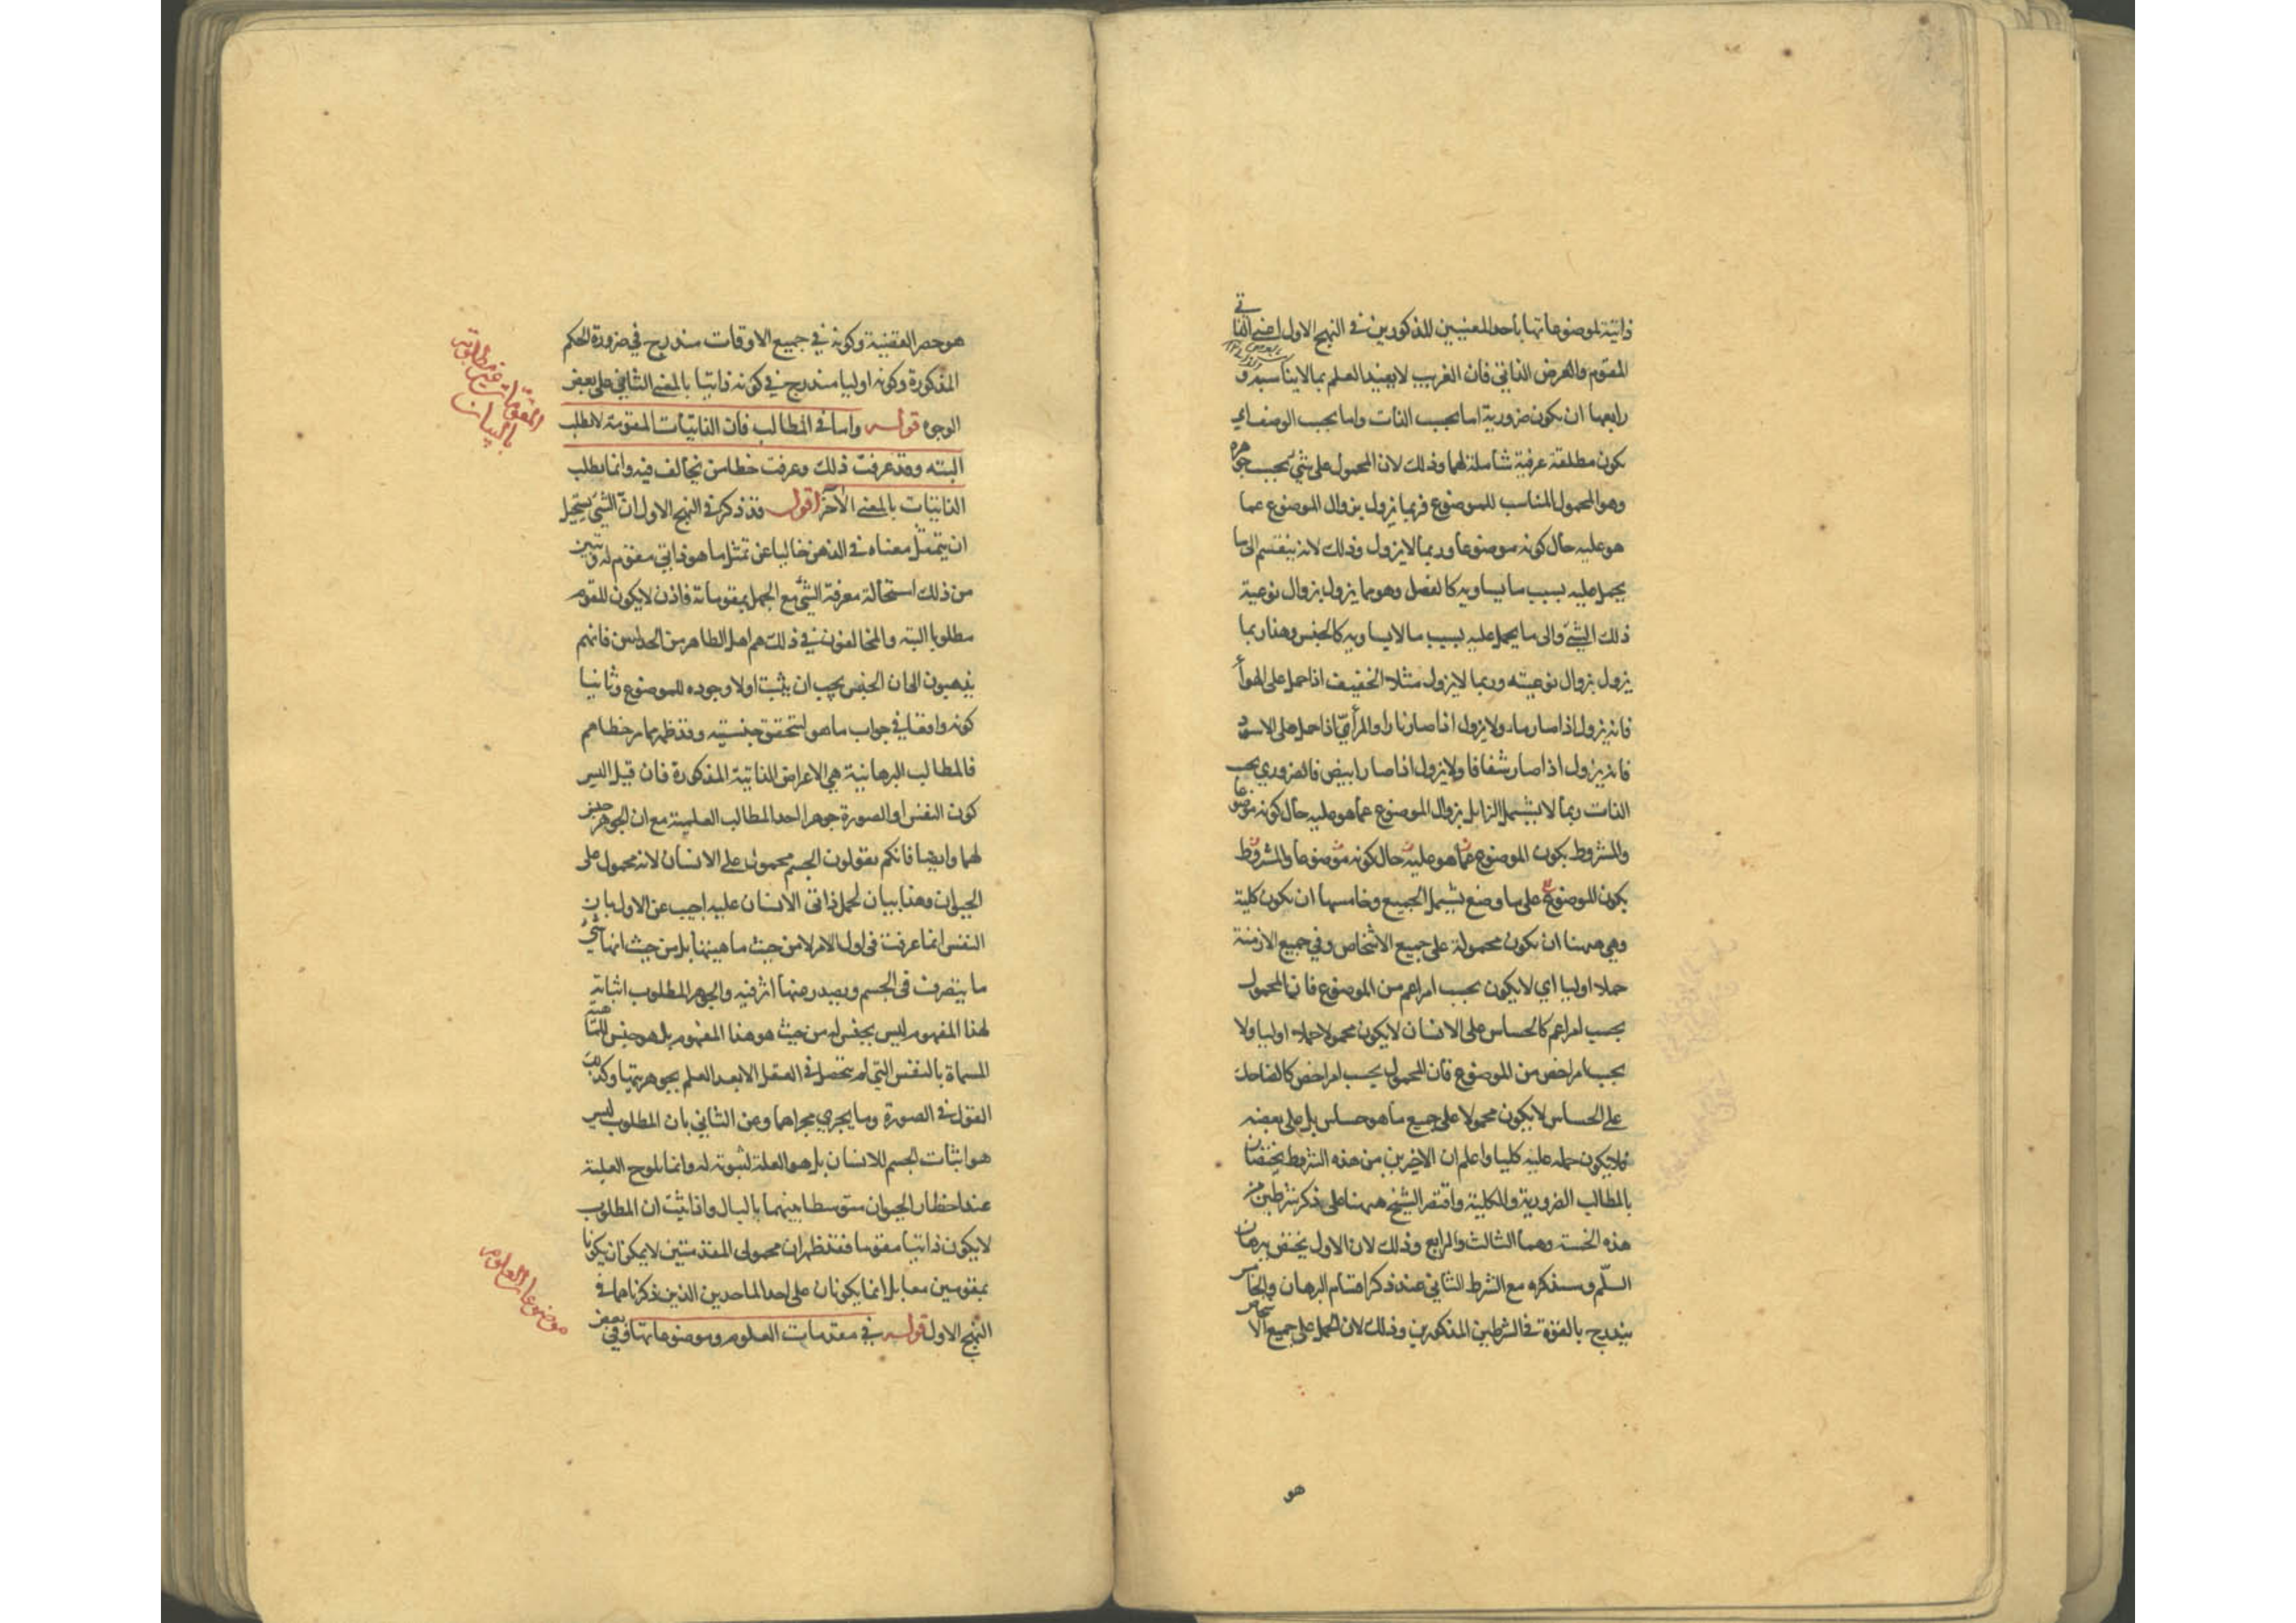 ذاتية لموضوعاتها باحد المعنيين المذكورين في النهج الاول اعني الذاتي
المقوم والعرض الذاتي فان الغريب لا يفيد العلم بما لا يناسبه و
رابعها ان يكون ضرورية اما بحسب الذات واما بحسب الوصف اي
يكون مطلقة عرفية شاملة لهما وذلك لان المحمول على شئ بحسب جوهره
وهو المحمول المناسب للموضوع فربما يزول بزوال الموضوع عما
هو عليه حال كونه موضوعا وربما لا يزول وذلك لانه ينقسم الى ما
يحمل عليه بسبب ما يساويه كالفصل وهو مما يزول بزوال نوعية
ذلك الشئ والى ما يحمل عليه بسبب ما لا يساويه كالجنس وهذا ربما
يزول بزوال نوعيته وربما لا يزول مثلا الخفيف اذا حمل على الهواء
فانه يزول اذا صار ماء ولا يزول اذا صار نارا والمرئي اذا حمل على الاسود
فانه يزول اذا صار شفافا ولا يزول اذا صار ابيض فالضروري بحسب
الذات ربما لا يشمل الزايل بزوال الموضوع عما هو عليه حال كونه موضوعا
والمشروط بكون الموضوع عما هو عليه حال كونه موضوعا والمشروط
بكون الموضوع على ما وضع يشمل الجميع وخامسها ان يكون كلية
وهي ههنا ان يكون محمولة على جميع الاشخاص وفي جميع الازمنة
حملا اوليا اي لا يكون بحسب امر اعم من الموضوع فان المحمول
بحسب امر اعم كالحساس على الانسان لا يكون محمولا حملا اوليا ولا
بحسب امر اخص من الموضوع فان المحمول بحسب امر اخص كالضاحك
على الحساس لا يكون محمولا على جميع ما هو حساس بل على بعضه
فلا يكون حمله عليه كليا واعلم ان الاخيرين من هذه الشروط يختصان
بالمطالب الضرورية والكلية واقتصر الشيخ ههنا على ذكر شرطين من
هذه الخمسة وهما الثالث والرابع وذلك لان الاول يختص ببرهان
اللم وسنذكره مع الشرط الثاني عند ذكر اقسام البرهان والخامس
يندرج بالقوة في الشرطين المذكورين وذلك لان الحمل على جميع الاشخاص
هو
هو حصر القضية وكونه في جميع الاوقات مندرج في ضرورة الحكم
المذكورة وكونه اوليا مندرج في كونه ذاتيا بالمعنى الثاني على بعض
الوجوه قوله واما في المطالب فان الذاتيات المقومة لا تطلب
البته وقد عرفت ذلك وعرفت خطا من يخالف فيه وانما تطلب
الذاتيات بالمعنى الآخر اقول قد ذكر في النهج الاول ان الشئ يستحيل
ان يتمثل معناه في الذهن خاليا عن تمثل ما هو ذاتي مقوم له وتبين
من ذلك استحالة معرفة الشئ مع الجهل بمقوماته فاذن لا يكون المقوم
مطلوبا البته والمخالفون في ذلك هم اهل الظاهر من الجدليين فانهم
يذهبون الى ان الجنس يجب ان يثبت اولا وجوده للموضوع وثانيا
كونه واقعا في جواب ما هو لتحقق جنسيته وقد ظهر مما مر خطاهم
فالمطالب البرهانية هي الاعراض الذاتية المذكورة فان قيل اليس
كون النفس او الصورة جوهرا احد المطالب العلمية مع ان الجوهر جنس
لهما وايضا فانكم تقولون الجسم محمول على الانسان لانه محمول على
الحيوان وهذا بيان لحمل ذاتي الانسان عليه اجيب عن الاول بان
النفس انما عرفت في اول الامر لا من حيث ماهيتها بل من حيث انها شئ
ما يتصرف في الجسم ويصدر منها اثر فيه والجوهر المطلوب اثباته
لهذا المفهوم ليس بجنس له من حيث هو هذا المفهوم بل هو جنس للماهية
المسماة بالنفس التي لم يتحصل في العقل الا بعد العلم بجوهريتها وكذلك
القول في الصورة وما يجري مجراهما وعن الثاني بان المطلوب ليس
هو اثبات الجسم للانسان بل هو العلة لثبوته له وانما يلوح العلية
عند اخطار الحيوان متوسطا بينهما بالبال واذا ثبت ان المطلوب
لا يكون ذاتيا مقوما فقد ظهر ان محمولي المقدمتين لا يمكن ان يكونا
بمقومين معا بل انما يكونان على احد الماخذين الذين ذكرناهما في
النهج الاول قوله في مقدمات العلوم وموضوعاتها وفي بعض
المقومات غير مطلوبة
بالبيان
موضوعات العلوم